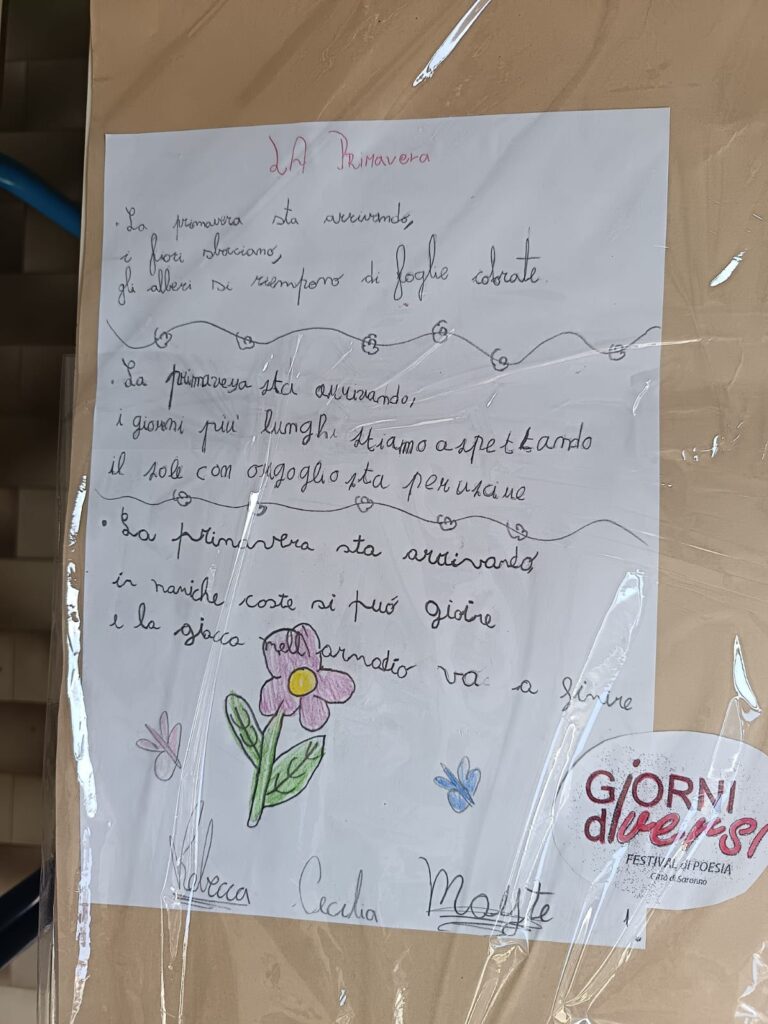 LA Primavera
· La primavera sta arrivando,
i fiori sbociano,
gli alberi si riempono di foglie colorate.
· La primavera sta arrivando,
i giorni più lunghi stiamo aspettando
il sole con orgoglio sta per uscire
· La primavera sta arrivando,
in maniche corte si può gioire
e la giacca nell'armadio va a finire
Rebecca Cecilia Mayte
GiORNI
diversi
FESTIVAL di POESIA
Città di Saronno